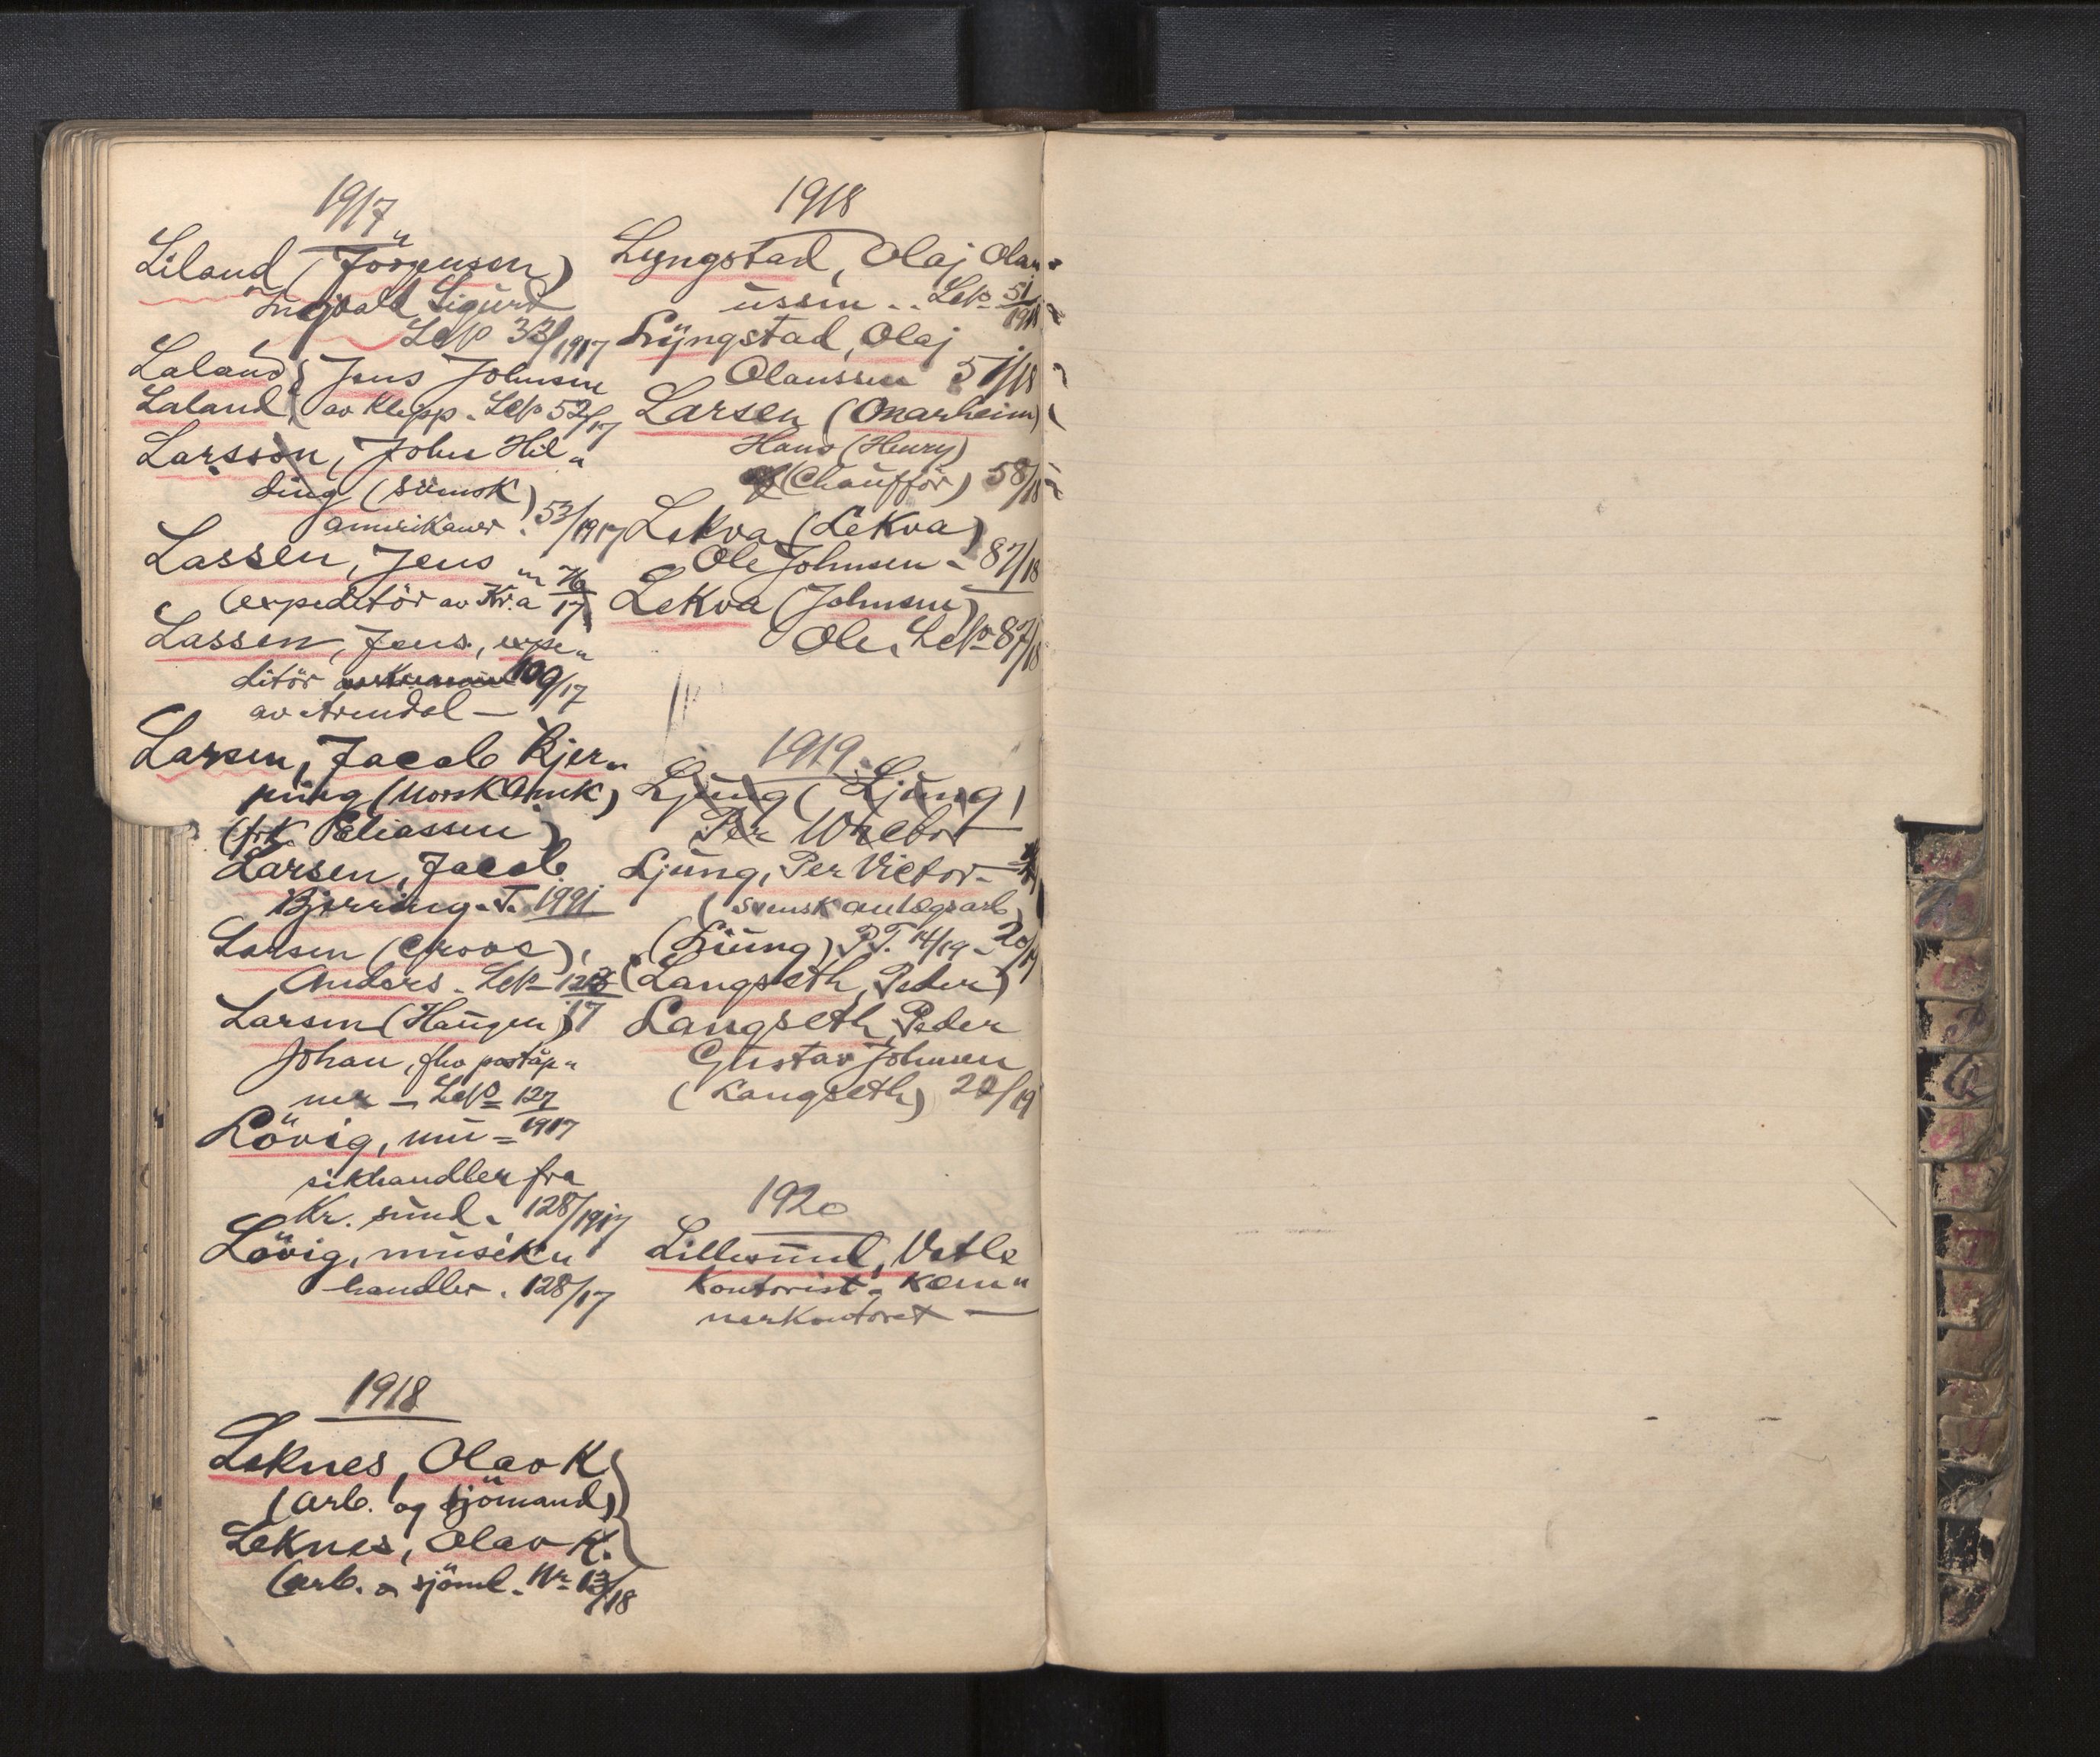 1917
Liland (Jörgensen)
Ingvald Sigurd
Lep 33/1917
Laland { Jens Johnsen
Laland { av Klepp. Lep 52/17
Larsson, John Hil„
ding (svensk
amerikaner. 53/1917
Lassen, Jens
(expeditör av Kr.a 17
Lassen, Jens, expe„
ditör 109/17
av Arendal —
Larsen, Jacob Bjer„
ring (norsk Amk)
(frk. Eliassen)
Larsen, Jacob
Bjerring. T.
Larsen (Groos),
Anders. Lep 17
Larsen (Haugen)
Johan, fhv poståp„
ner — Lep 127
1917
Lövig, mu=
sikhandler fra
Kr. sund. 128/1917
Lövig, musik„
handler. 128/17
1918
Leknes, Olav K
(arb. og sjömand)
Leknes, Olav K.
(arb. o sjöml. Nr 13/18
1918
Lyngstad, Olaj Olan=
ussen .. Lep 51
1918
Lyngstad, Olaj
Olaussen 51/18
Larsen (Onarheim)
Hans (Henry)
(Chaufför) 58/18
Lekva (LeKva)
Ole Johnsen - 87/18
LeKva (Johnsen)
Ole. Lep 87/18
1919.
Ljung (Ljung)
Per Victor
Ljung, Per Victor -
(svensk anlægsarb
(Liung) P.T. 14/19 - 20/19
(Langseth, Peder)
Langseth, Peder
Gustav Johnsen
(Langseth) 20/19
1920
Lillesund, Vetle
Kontorist. Kæm„
nerkontoret —